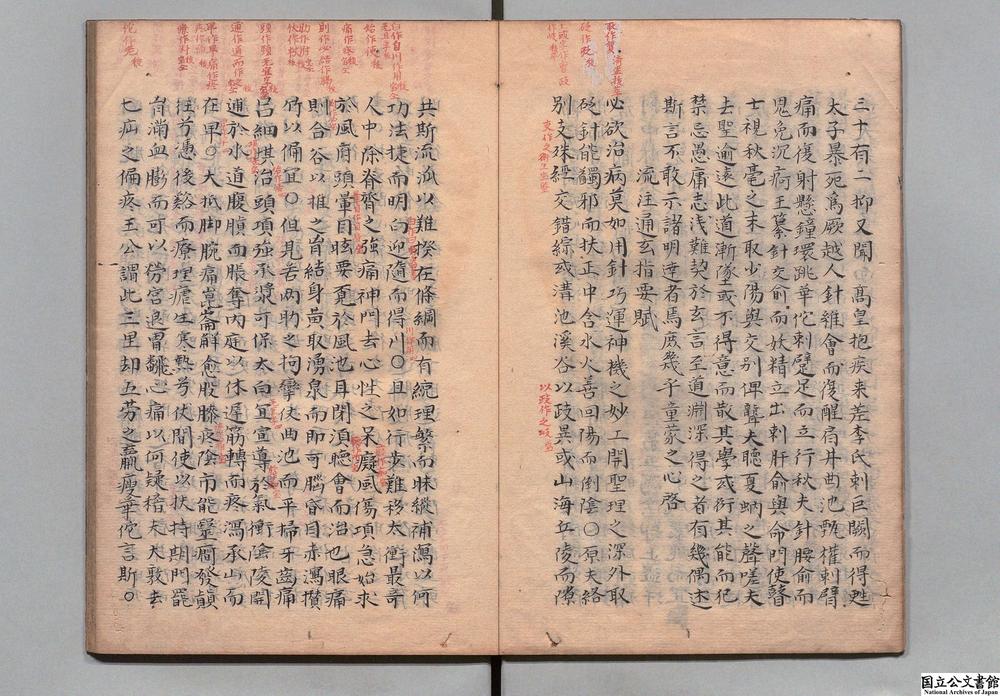 三十有二抑又聞高皇抱疾未差李氏刺巨闕而得甦
太子暴死為厥越人針維會而復醒肩井曲池甄權刺臂
痛而復射懸鐘環跳華佗刺躄足而立行秋夫針腰俞而
鬼免沉痾王纂針交俞而妖精立出刺肝俞與命門使瞽
士視秋毫之末取少陽與交別俾聾夫聽夏蚋之聲嗟夫
去聖逾遠此道漸墜或不得意而散其學或衒其能而犯
禁忌愚庸志淺難契於玄言至道淵深得之者有幾偶述
斯言不敢示諸明達者焉庶幾乎童蒙之心啓
流注通玄指要賦
必欲治病莫如用針巧運神機之妙工開聖理之深外取
砭針能蠲邪而扶正中含水火善回陽而倒陰〇原夫絡
別支殊經交錯綜或溝池溪谷以歧異或山海丘陵而隙
共斯流泒以難揆在條綱而有統理繁而昧縱補瀉以何
功法捷而明白迎隨而得川〇且如行步難移太衝最奇
人中除脊膂之強痛神門去心性之呆癡風傷項急始求
於風府頭暈目眩要覔於風池耳閉湏聽會而治也眼痛
則合谷以推之胷結身黃取湧泉而即可腦昏目赤瀉攢
竹以偏宜〇但見苦兩肋之拘攣使曲池而平掃牙齒痛
呂細堪治頭項強承漿可保太白宜宣導於氣衝陰陵開
通於水道腹䐜而脹奪内庭以休遲筋轉而疼瀉承山而
在早〇大抵脚腕痛崑崙解愈股膝疼陰市能醫癎發顛
狂兮憑後谿而療理瘧生寒熱兮仗間使以扶持期門罷
胷滿血膨而可以勞宮退胃翻心痛以何疑稽夫大敦去
七疝之偏疼王公謂此三里却五劳之羸痩華佗言斯〇
国立公文書館
National Archives of Japan